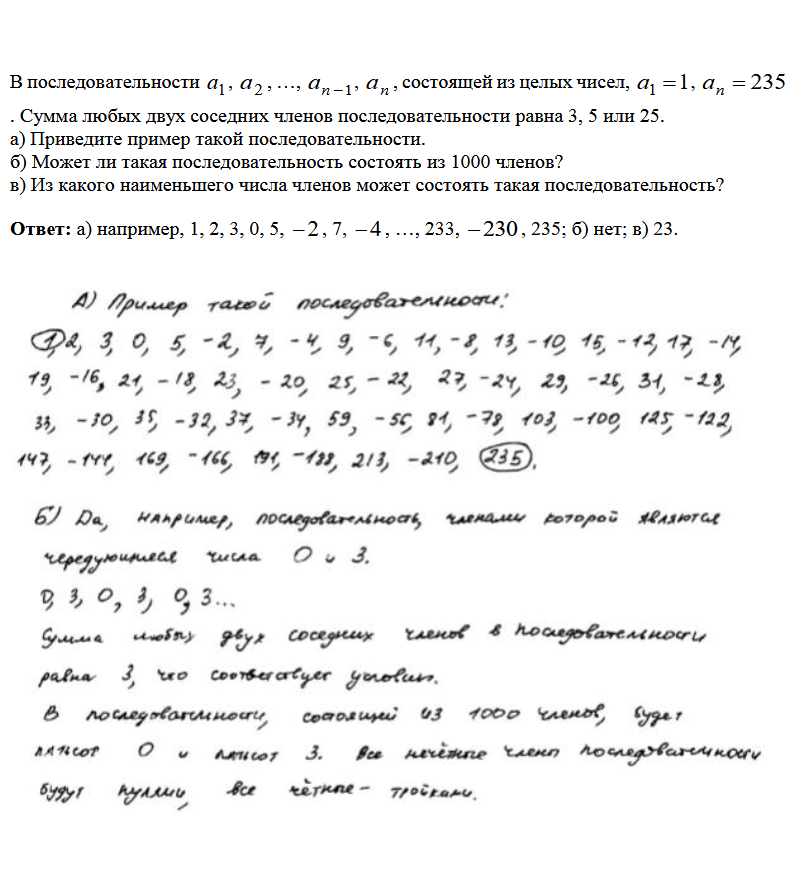 В последовательности a₁, a₂, …, aₙ₋₁, aₙ, состоящей из целых чисел, a₁ = 1, aₙ = 235
. Сумма любых двух соседних членов последовательности равна 3, 5 или 25.
а) Приведите пример такой последовательности.
б) Может ли такая последовательность состоять из 1000 членов?
в) Из какого наименьшего числа членов может состоять такая последовательность?
Ответ: а) например, 1, 2, 3, 0, 5, −2, 7, −4, …, 233, −230, 235; б) нет; в) 23.
А) Пример такой последовательности:
1, 2, 3, 0, 5, -2, 7, -4, 9, -6, 11, -8, 13, -10, 15, -12, 17, -14,
19, -16, 21, -18, 23, -20, 25, -22, 27, -24, 29, -26, 31, -28,
33, -30, 35, -32, 37, -34, 59, -56, 81, -78, 103, -100, 125, -122,
147, -144, 169, -166, 191, -188, 213, -210, 235.
Б) Да, например, последовательность, членами которой являются
чередующиеся числа 0 и 3.
0, 3, 0, 3, 0, 3...
Сумма любых двух соседних членов в последовательности
равна 3, что соответствует условию.
В последовательности, состоящей из 1000 членов, будет
пятьсот 0 и пятьсот 3. Все нечётные члены последовательности
будут нулями, все чётные - тройками.